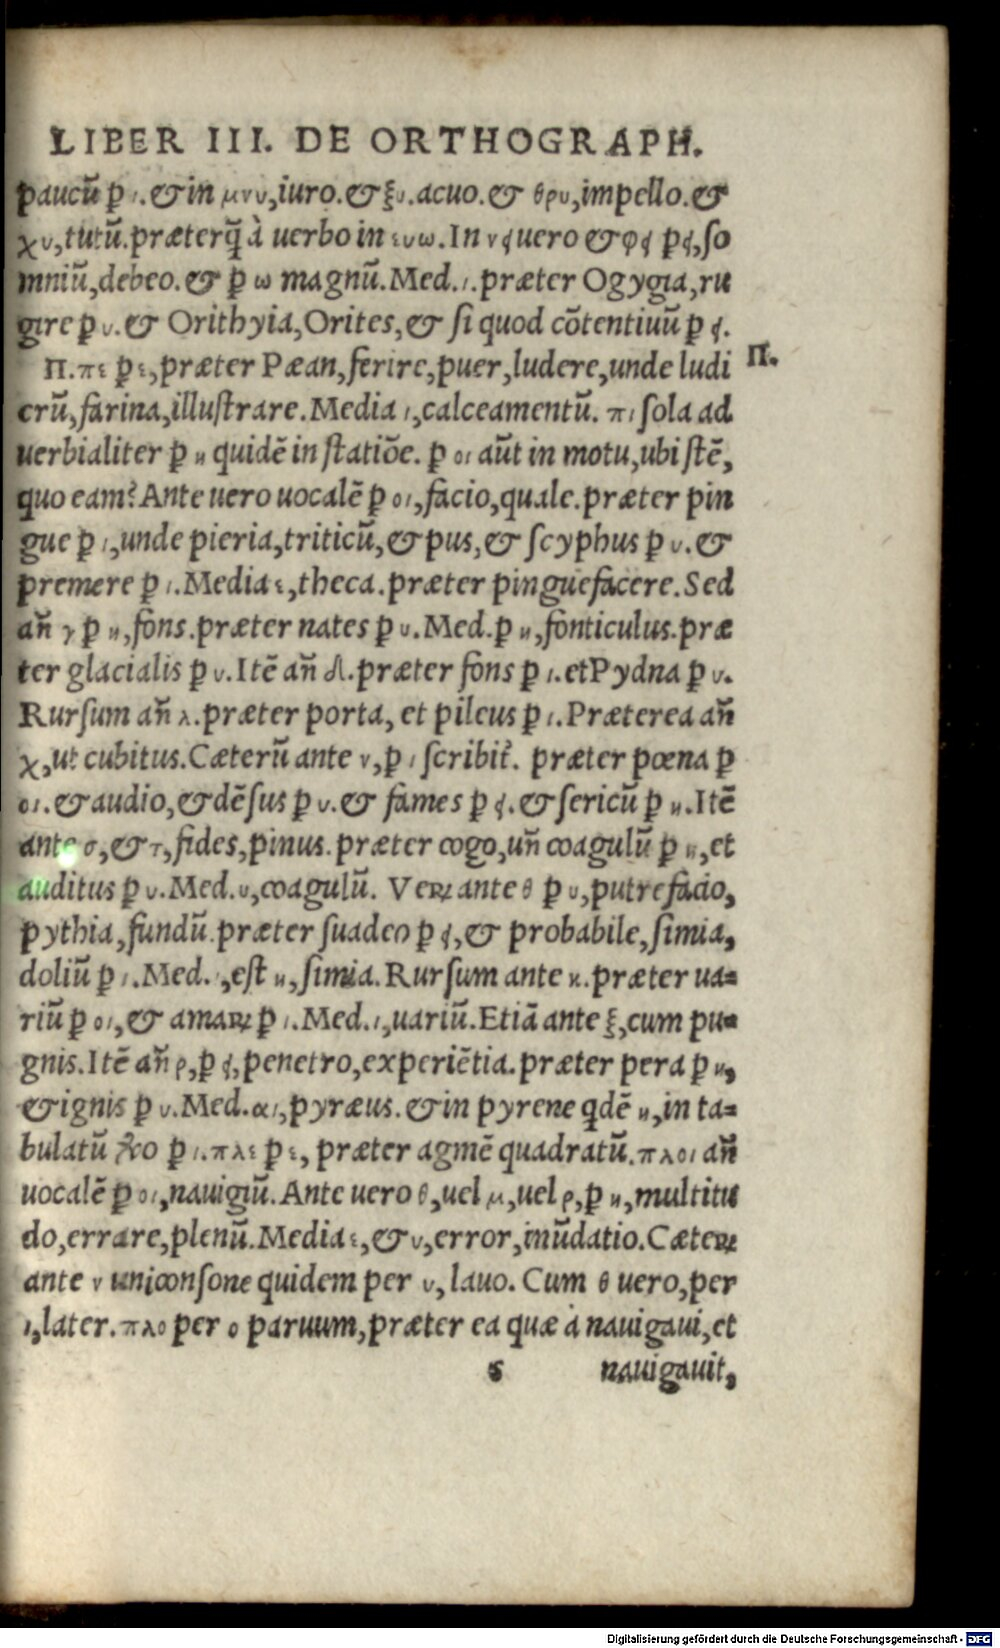 LIBER III. DE ORTHOGRAPH.
paucũ ꝑ ι. & in μνυ, iuro. & ξυ. acuo. & θρυ, impello. &
χυ, tutũ. præterq̃ à uerbo in ευω. In νει uero & φει ꝑ ει, so
mniũ, debeo. & ꝑ ω magnũ. Med. ι. præter Ogygia, ru
gire ꝑ υ. & Orithyia, Orites, & si quod cõtentiuũ ꝑ ει.
Π. πε ꝑ ε, præter Pæan, ferire, puer, ludere, unde ludi
Π.
crũ, farina, illustrare. Media ι, calceamentũ. πι sola ad
uerbialiter ꝑ η quidẽ in statiõe. ꝑ οι aũt in motu, ubi stẽ,
quo eam? Ante uero uocalẽ ꝑ οι, facio, quale. præter pin
gue ꝑ ι, unde pieria, triticũ, & pus, & scyphus ꝑ υ. &
premere ꝑ ι. Media ε, theca. præter pinguefacere. Sed
añ γ ꝑ η, fons. præter nates ꝑ υ. Med. ꝑ η, fonticulus. præ
ter glacialis ꝑ υ. Itẽ añ δ. præter fons ꝑ ι. et Pydna ꝑ υ.
Rursum añ λ. præter porta, et pileus ꝑ ι. Præterea añ
χ, ut cubitus. Cæterũ ante ν, ꝑ ι scribit̃. præter pœna ꝑ
οι. & audio, & dẽsus ꝑ υ. & fames ꝑ ει. & sericũ ꝑ η. Itẽ
ante σ, & τ, fides, pinus. præter cogo, uñ coagulũ ꝑ η, et
auditus ꝑ υ. Med. υ, coagulũ. Veꝝ ante θ ꝑ υ, putrefacio,
pythia, fundũ. præter suadeo ꝑ ει, & probabile, simia,
doliũ ꝑ ι. Med. ι, est η, simia. Rursum ante κ. præter ua-
riũ ꝑ οι, & amaꝝ ꝑ ι. Med. ι, uariũ. Etiã ante ξ, cum pu-
gnis. Itẽ añ ρ, ꝑ ει, penetro, experiẽtia. præter pera ꝑ η,
& ignis ꝑ υ. Med. αι, pyræus. & in pyrene qdẽ η, in ta-
bulatũ ꝑ ι. πλε ꝑ ε, præter agmẽ quadratũ. πλοι añ
uocalẽ ꝑ οι, nauigiũ. Ante uero θ, uel μ, uel ρ, ꝑ η, multitu
do, errare, plenũ. Media ε, & υ, error, inũdatio. Cæteꝝ
ante ν uniconsone quidem per υ, lauo. Cum θ uero, per
ι, later. πλο per ο paruum, præter ea quæ à nauigaui, et
s nauigauit,
Digitalisierung gefördert durch die Deutsche Forschungsgemeinschaft - DFG